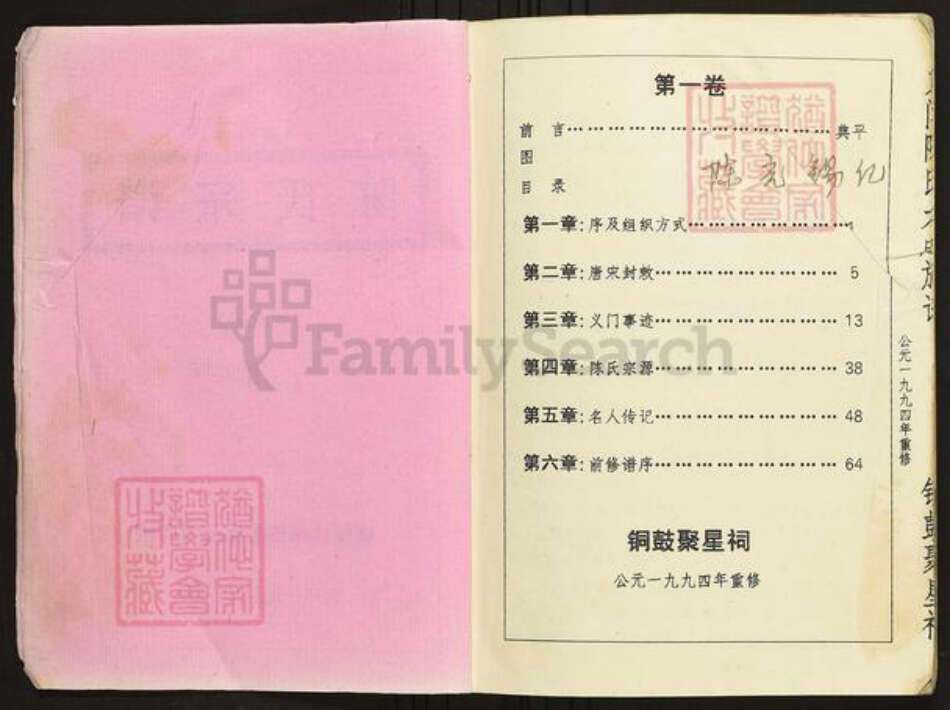 第一卷
前 言………………………………典平
图
目 录
陈 克 锡 纪
第一章:序及组织方式…………………………1
第二章:唐宋封敕…………………………… 5
第三章:义门事迹…………………………… 13
第四章:陈氏宗源…………………………… 38
第五章:名人传记…………………………… 48
第六章:前修谱序…………………………… 64
铜鼓聚星祠
公元一九九四年重修
公元一九九四年重修
铜鼓聚星祠
FamilySearch